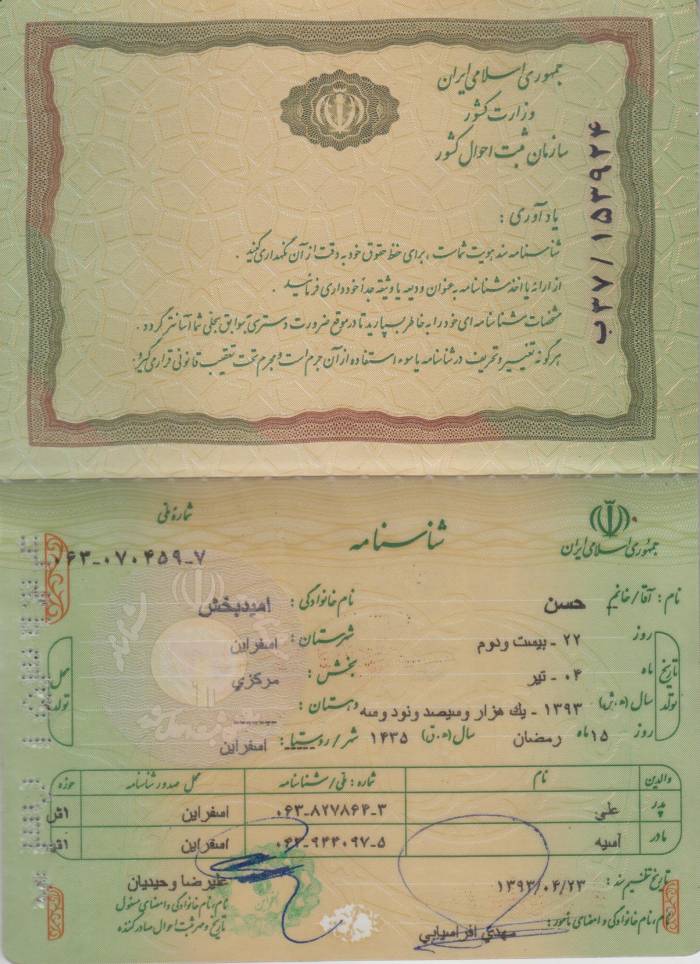 جمهوری اسلامی ایران
وزارت کشور
سازمان ثبت احوال کشور
ب۳۷/۱۵۳۹۲۴
یادآوری :
شناسنامه سند هویت شماست ، برای حفظ حقوق خود به دقت از آن نگهداری کنید .
از ارائه یا اخذ شناسنامه به عنوان ودیعه یا وثیقه جداً خودداری فرمائید .
مشخصات شناسنامه ای خود را به خاطر بسپارید تا در موقع ضرورت دسترسی به سوابق سجلی شما آسانتر گردد .
هرگونه تغییر و تحریف در شناسنامه یا سوء استفاده از آن جرم است و مجرم تحت تعقیب قانونی قرار می گیرد .
جمهوری اسلامی ایران
شناسنامه
شماره ملی
۰۶۳-۰۷۰۴۵۹-۷
نام : آقا/خانم حسن نام خانوادگی : امیدبخش
تاریخ تولد روز ۲۲ - بیست ودوم شهرستان : اسفراین محل تولد
ماه ۰۴ - تیر بخش : مرکزي
سال (ه.ش) ۱۳۹۳ - یك هزار وسیصد ونود وسه دهستان : -------
روز ۱۵ ماه رمضان سال (ه.ق) ۱۴۳۵ شهر/روستا : اسفراین
والدین نام شماره : ملی/شناسنامه محل صدور شناسنامه حوزه
پدر علی ۰۶۳-۸۲۷۸۶۴-۳ اسفراین
مادر آسیه ۰۶۳-۹۴۴۰۹۷-۵ اسفراین
تاریخ تنظیم سند : ۱۳۹۳/۰۴/۲۳ علیرضا وحیدیان
نام، نام خانوادگی و امضای مأمور : مهدي افراسیابي
نام، نام خانوادگی و امضای مسئول
تاریخ و مهر ثبت احوال صادرکننده